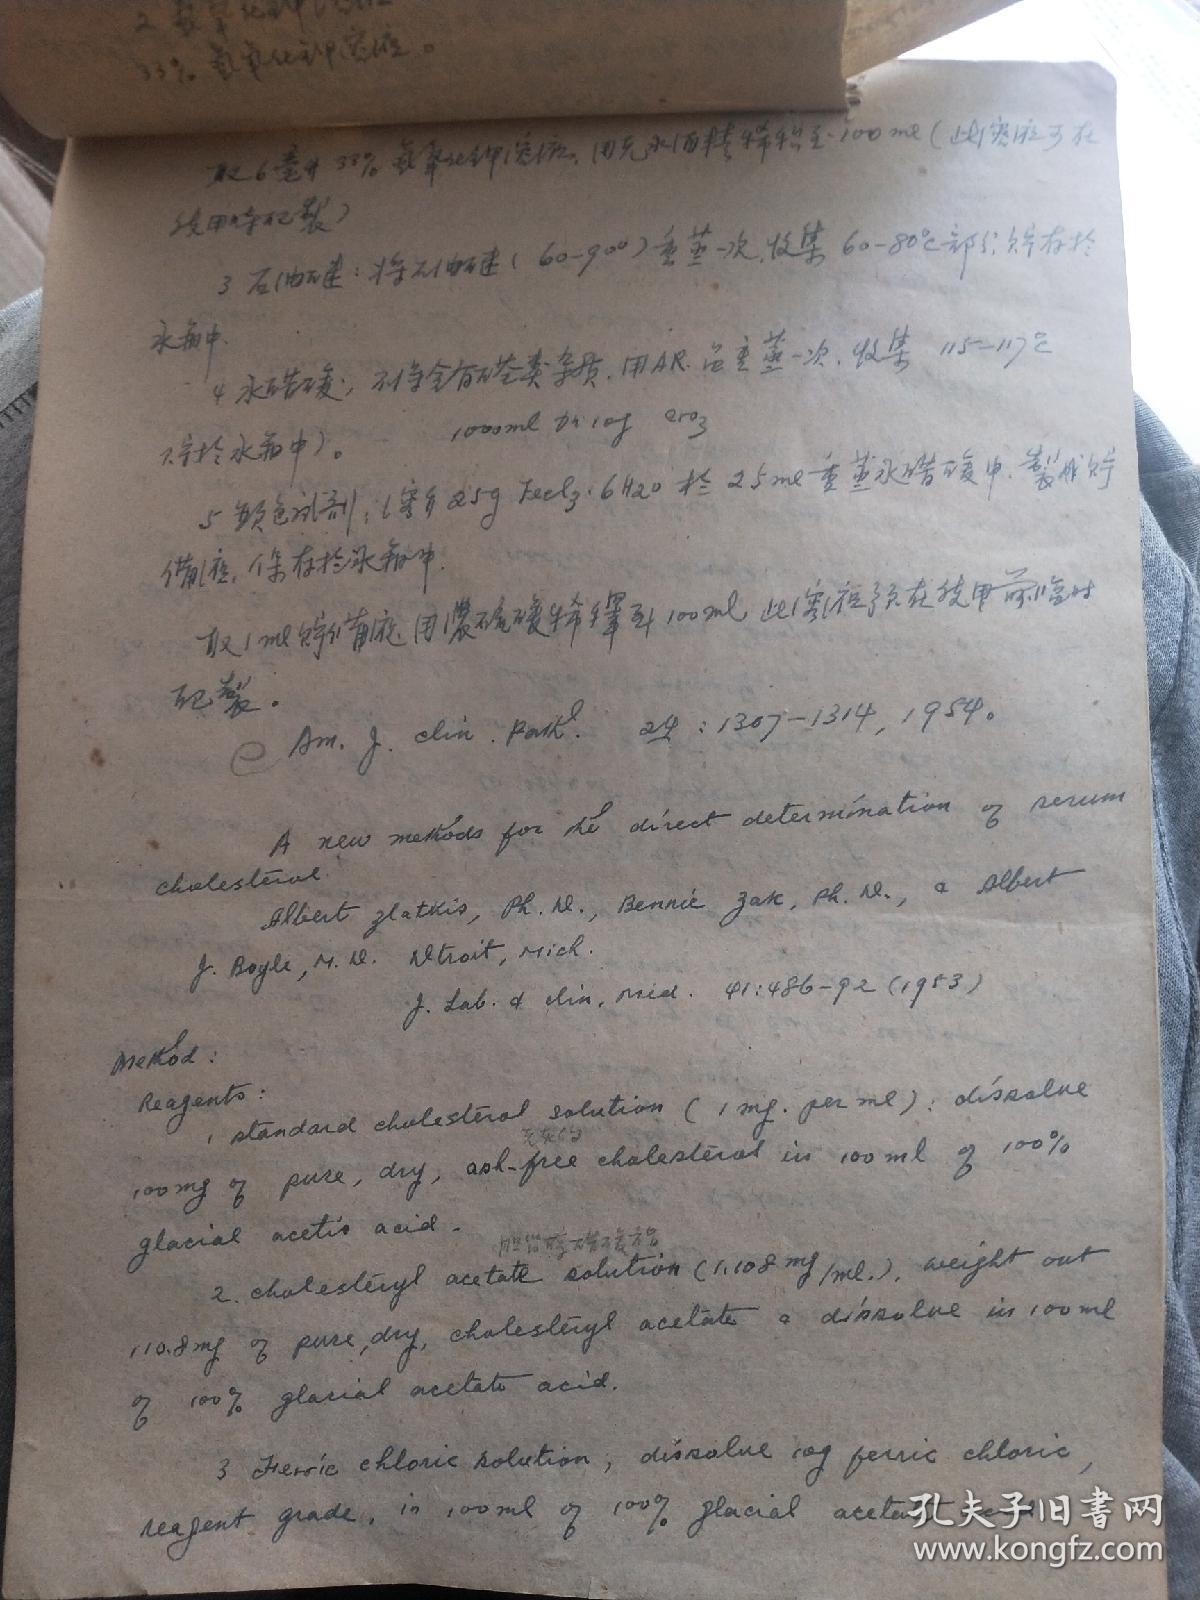 2 氢氧化钾溶液
33% 氢氧化钾溶液。
取6毫升33%氢氧化钾溶液,用无水酒精稀释至100ml(此溶液可在
使用時配製)
3 石油醚:将石油醚(60-90°)重蒸一次,收集60-80℃部分,贮存於
冰箱中.
4 冰醋酸;不得含有醛类杂质.用AR.重蒸一次.收集115-117℃
贮於冰箱中)。
1000ml 10g CrO3
5 顏色试剂:溶解25g FeCl3·6H2O 於25ml重蒸冰醋酸中.製成贮
備液,保存於冰箱中.
取1ml贮備液用濃硫酸稀釋到100ml.此溶液须在使用前临时
配製。
Am. J. clin. Path. 24:1307-1314, 1954。
A new methods for the direct determination of serum
cholesterol.
Albert Zlatkis, Ph.D., Bennie Zak, Ph.D., & Albert
J. Boyle, M.D. Dtroit, Mich.
J. Lab. & clin, Med. 41:486-92 (1953)
Method:
Reagents:
1 standard cholesterol solution (1 mg. per ml): dissolve
100mg of pure, dry, ash-free cholesterol in 100ml of 100%
glacial acetic acid.
胆甾醇醋酸
2. cholesteryl acetate solution (1.108 mg/ml.). weight out
110.8mg of pure, dry, cholesteryl acetate & dissolve in 100ml
of 100% glacial acetate acid.
3 Ferric chloric solution; dissolve 10g ferric chloric,
reagent grade, in 100ml of 100% glacial
孔夫子旧书网
www.kongfz.com